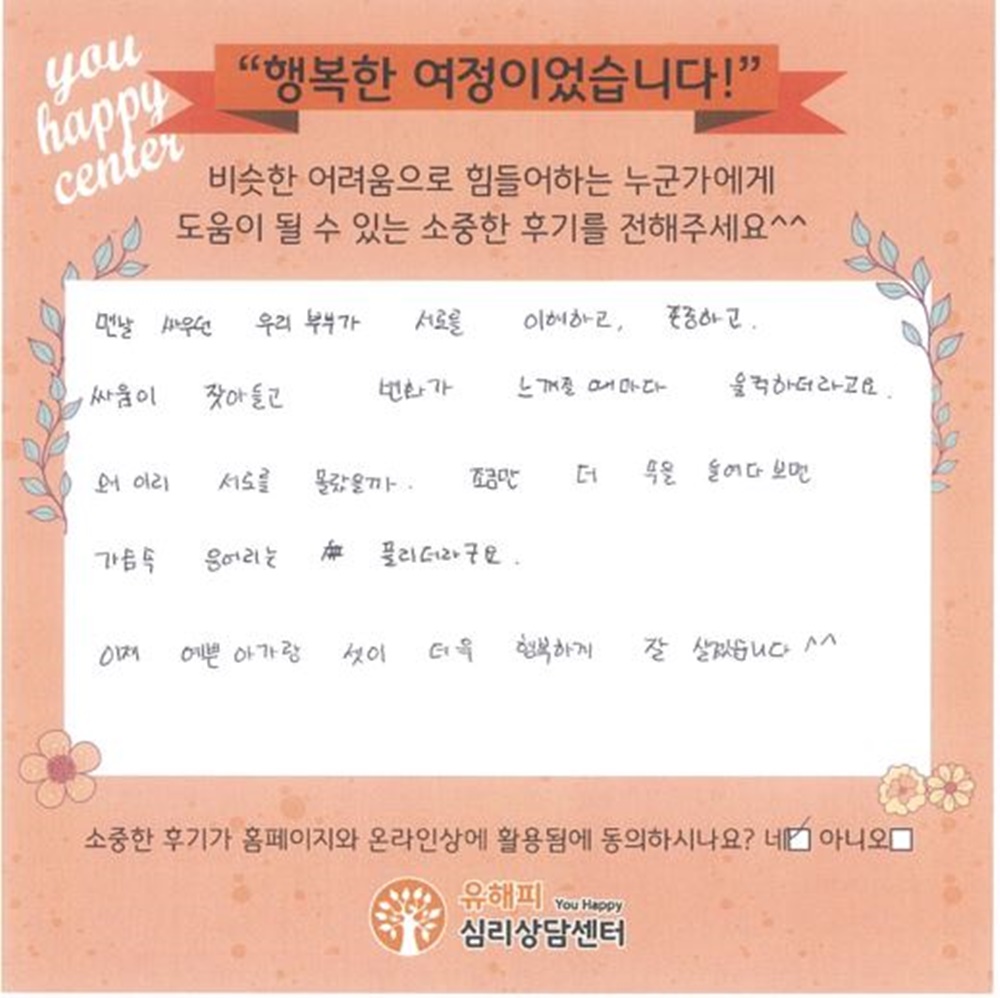 you
happy
center
“행복한 여정이었습니다!”
비슷한 어려움으로 힘들어하는 누군가에게
도움이 될 수 있는 소중한 후기를 전해주세요^^
맨날 싸우던 우리 부부가 서로를 이해하고, 존중하고.
싸움이 잦아들고 변화가 느껴질 때마다 울컥하더라고요.
왜 이리 서로를 몰랐을까. 조금만 더 속을 들여다 보면
가슴속 응어리는 풀리더라구요.
이제 예쁜 아가랑 셋이 더욱 행복하게 잘 살겠습니다 ^^
소중한 후기가 홈페이지와 온라인상에 활용됨에 동의하시나요? 네 아니오
유해피 You Happy
심리상담센터